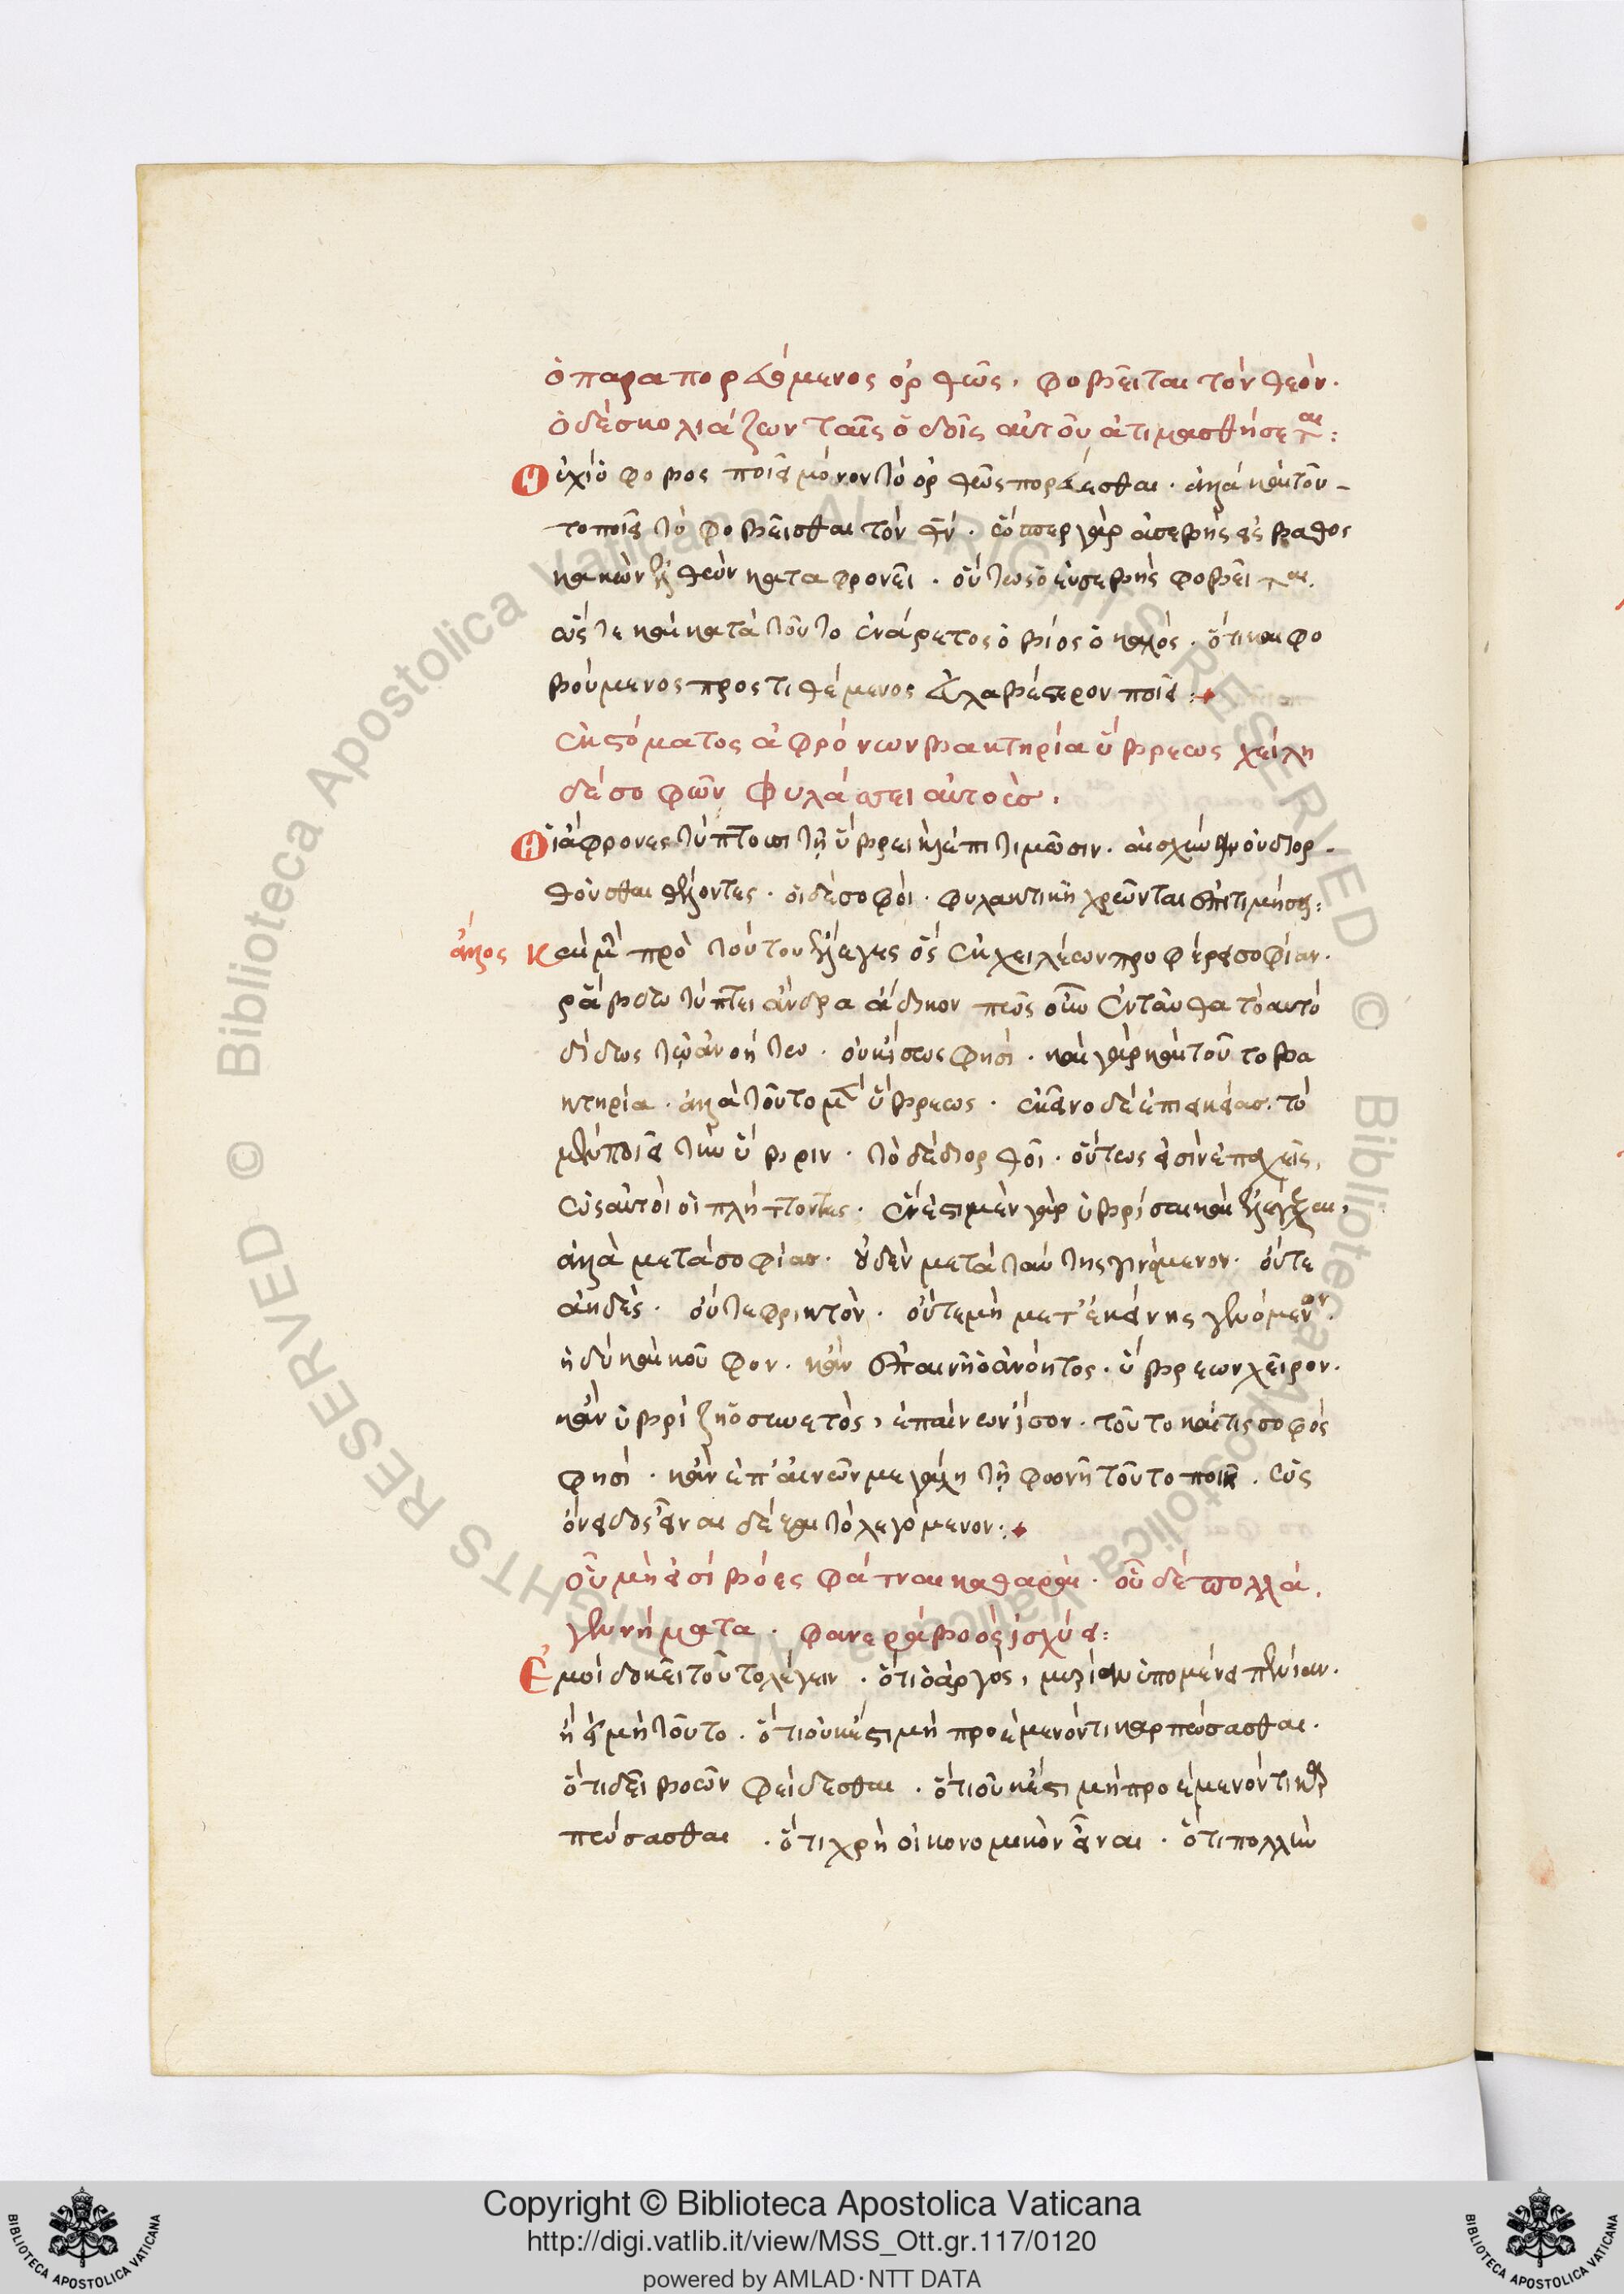 ὁ παραπορευόμενος ὀρθῶς, φοβεῖται τὸν θεόν.
ὁ δὲ σκολιάζων ταῖς ὁδοῖς αὐτοῦ ἀτιμασθήσεται:
Οὐχὶ ὁ φόβος ποιεῖ μόνον τὸ ὀρθῶς πορεύεσθαι. ἀλλὰ καὶ τοῦ-
το ποιεῖ τὸ φοβεῖσθαι τὸν θν. ὥσπερ γὰρ ἀσεβὴς εἰς βάθος
κακῶν ἐλθὼν καταφρονεῖ. οὕτως ὁ εὐσεβὴς φοβεῖται.
ὥστε καὶ κατὰ τοῦτο ἐνάρετος ὁ βίος ὁ καλός. ὅτι καὶ φο
βούμενος προστιθέμενος εὐλαβέστερον ποιεῖ:
ἐκ στόματος ἀφρόνων βακτηρία ὕβρεως χείλη
δὲ σοφῶν φυλάσσει αὐτούς.
Οἱ ἄφρονες τύπτουσι τῇ ὕβρει καὶ ἐπιτιμῶσιν. αἰσχύνην οὐ διορ-
θοῦσθαι θέλοντες. οἱ δὲ σοφοί. φυλακτικῇ χρῶνται ἐπιτιμήσει:
ἄλλος Καὶ μὴν πρὸ τούτου ἔλεγες ὃς ἐκ χειλέων προφέρει σοφίαν.
ῥάβδω τύπτει ἄνδρα ἀκάρδιον πῶς οὖν ἐνταῦθα τὸ αὐτὸ
δίδως τῷ ἀνοήτω. οὐκ ἴσως φησί. καὶ γὰρ καὶ τοῦτο βα
κτηρία. ἀλλὰ τοῦτο μετὰ ὕβρεως. ἐκεῖνο δὲ ἐπιεικείας. τὸ
μὲν ποιεῖ τὴν ὕβριν. τὸ δὲ διορθοῖ. οὕτως εἰσὶν ἐπαχθεῖς,
ὡς αὐτοὶ οἱ πλήττοντες. ἔνεστι μὲν γὰρ ὑβρίσαι καὶ ἐλέγξαι,
ἀλλὰ μετὰ σοφίας. οὐδὲν μετὰ ταύτης γινόμενον. οὔτε
ἀηδές. οὔτε φρικτόν. οὔτε μὴ μετ' ἐκείνης γενόμενον.
ἡδὺ καὶ κοῦφον. κἂν ἐπαινῇ ὁ ἀνόητος. ὕβρεων χεῖρον.
κἂν ὑβρίζῃ ὁ συνετός, ἐπαίνων ἴσον. τοῦτο καί τις σοφός
φησί. κἂν ἐπαινῶν μεγάλη τῇ φωνῇ τοῦτο ποιῇ. ὡς
ὄνειδος εἶναι δέχεται τὸ λεγόμενον:
οὗ μή εἰσι βόες φάτναι καθαραί. οὗ δὲ πολλὰ
γεννήματα. φανερὰ βοὸς ἰσχύς:
Ἐμοὶ δοκεῖ τοῦτο λέγειν. ὅτι ὁ ἀργός, μεγίστην ὑπομένει πενίαν.
ἢ εἰ μὴ τοῦτο. ὅτι οὐκ ἔστι μὴ προέμενόν τι καρπώσασθαι.
ὅτι δεῖ βοῶν φείδεσθαι. ὅτι οὐκ ἔστι μὴ προέμενόν τι καρ
πώσασθαι. ὅτι χρὴ οἰκονομικὸν εἶναι. ὅτι πολλὴν
Copyright © Biblioteca Apostolica Vaticana
http://digi.vatlib.it/view/MSS_Ott.gr.117/0120
powered by AMLAD·NTT DATA